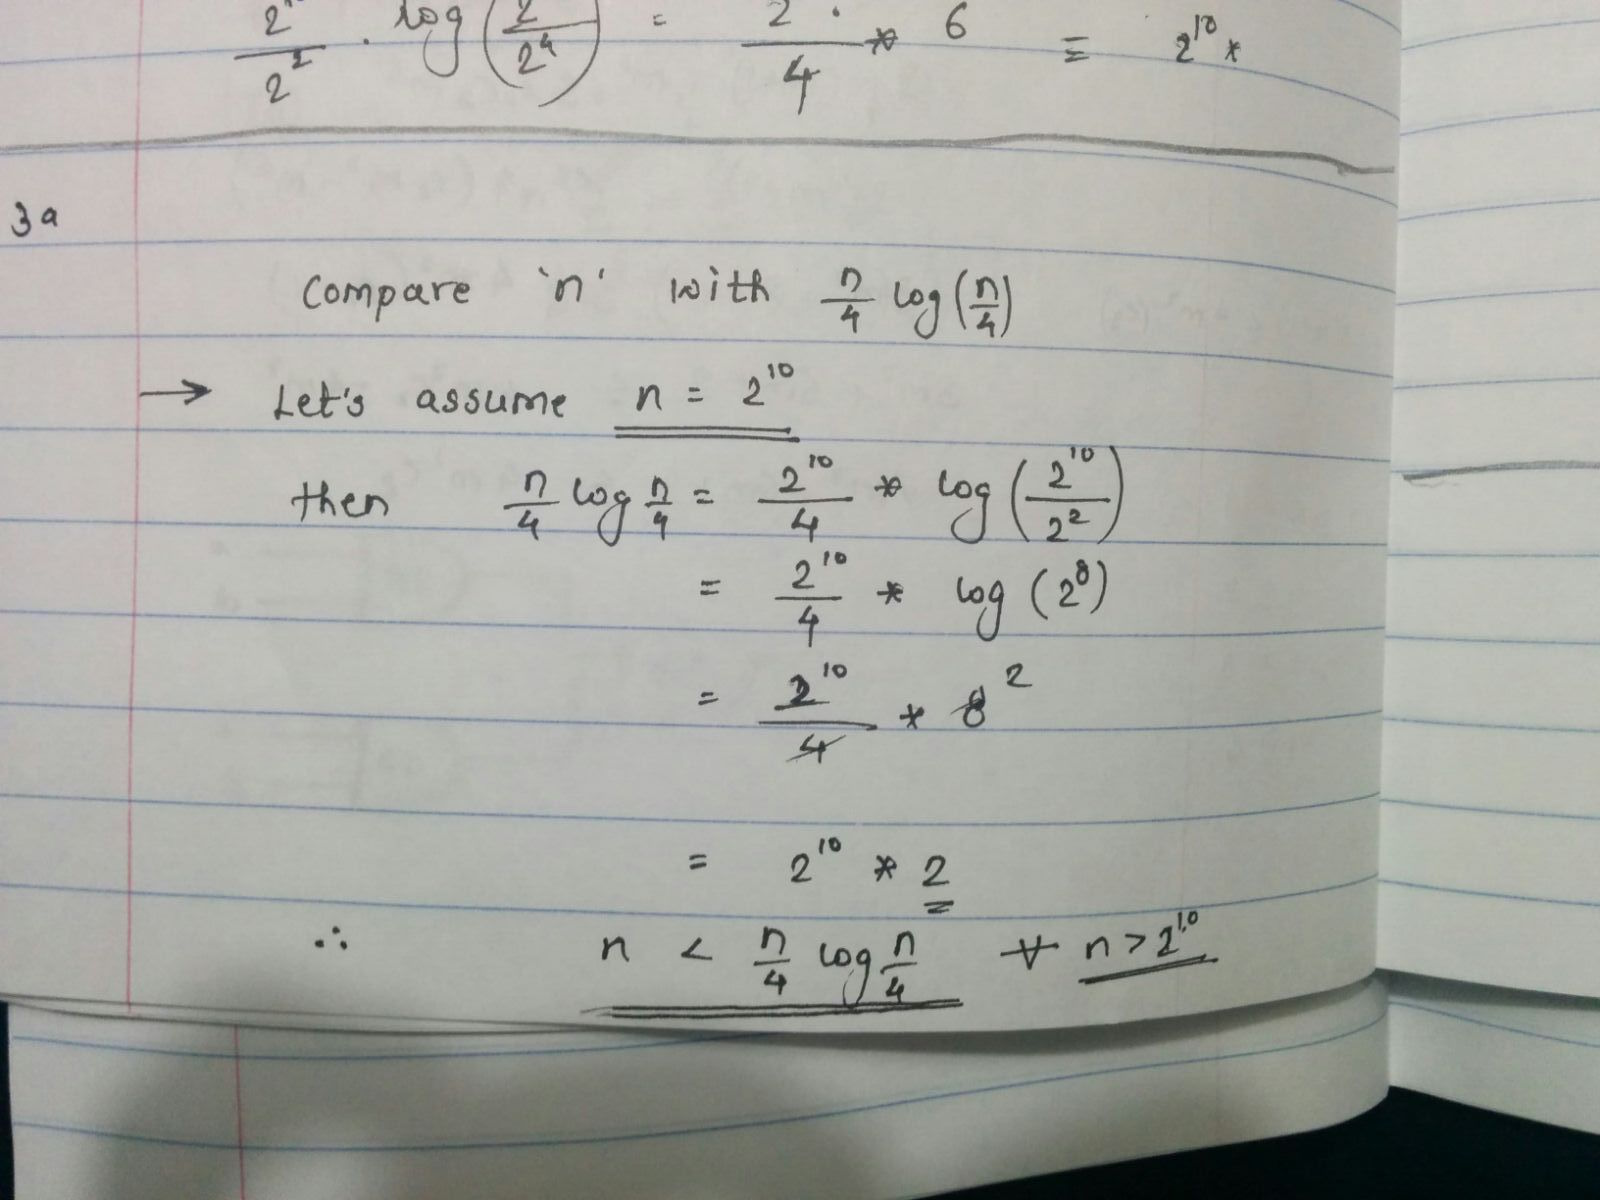 2^10/2^2 . log(2/2^4) = 2/4 * 6 = 2^10 *
3a
Compare 'n' with n/4 log(n/4)
→ Let's assume n = 2^10
then n/4 log n/4 = 2^10/4 * log(2^10/2^2)
= 2^10/4 * log(2^8)
= 2^10/4 * 8 2
= 2^10 * 2
∴ n < n/4 log n/4 ∀ n > 2^10